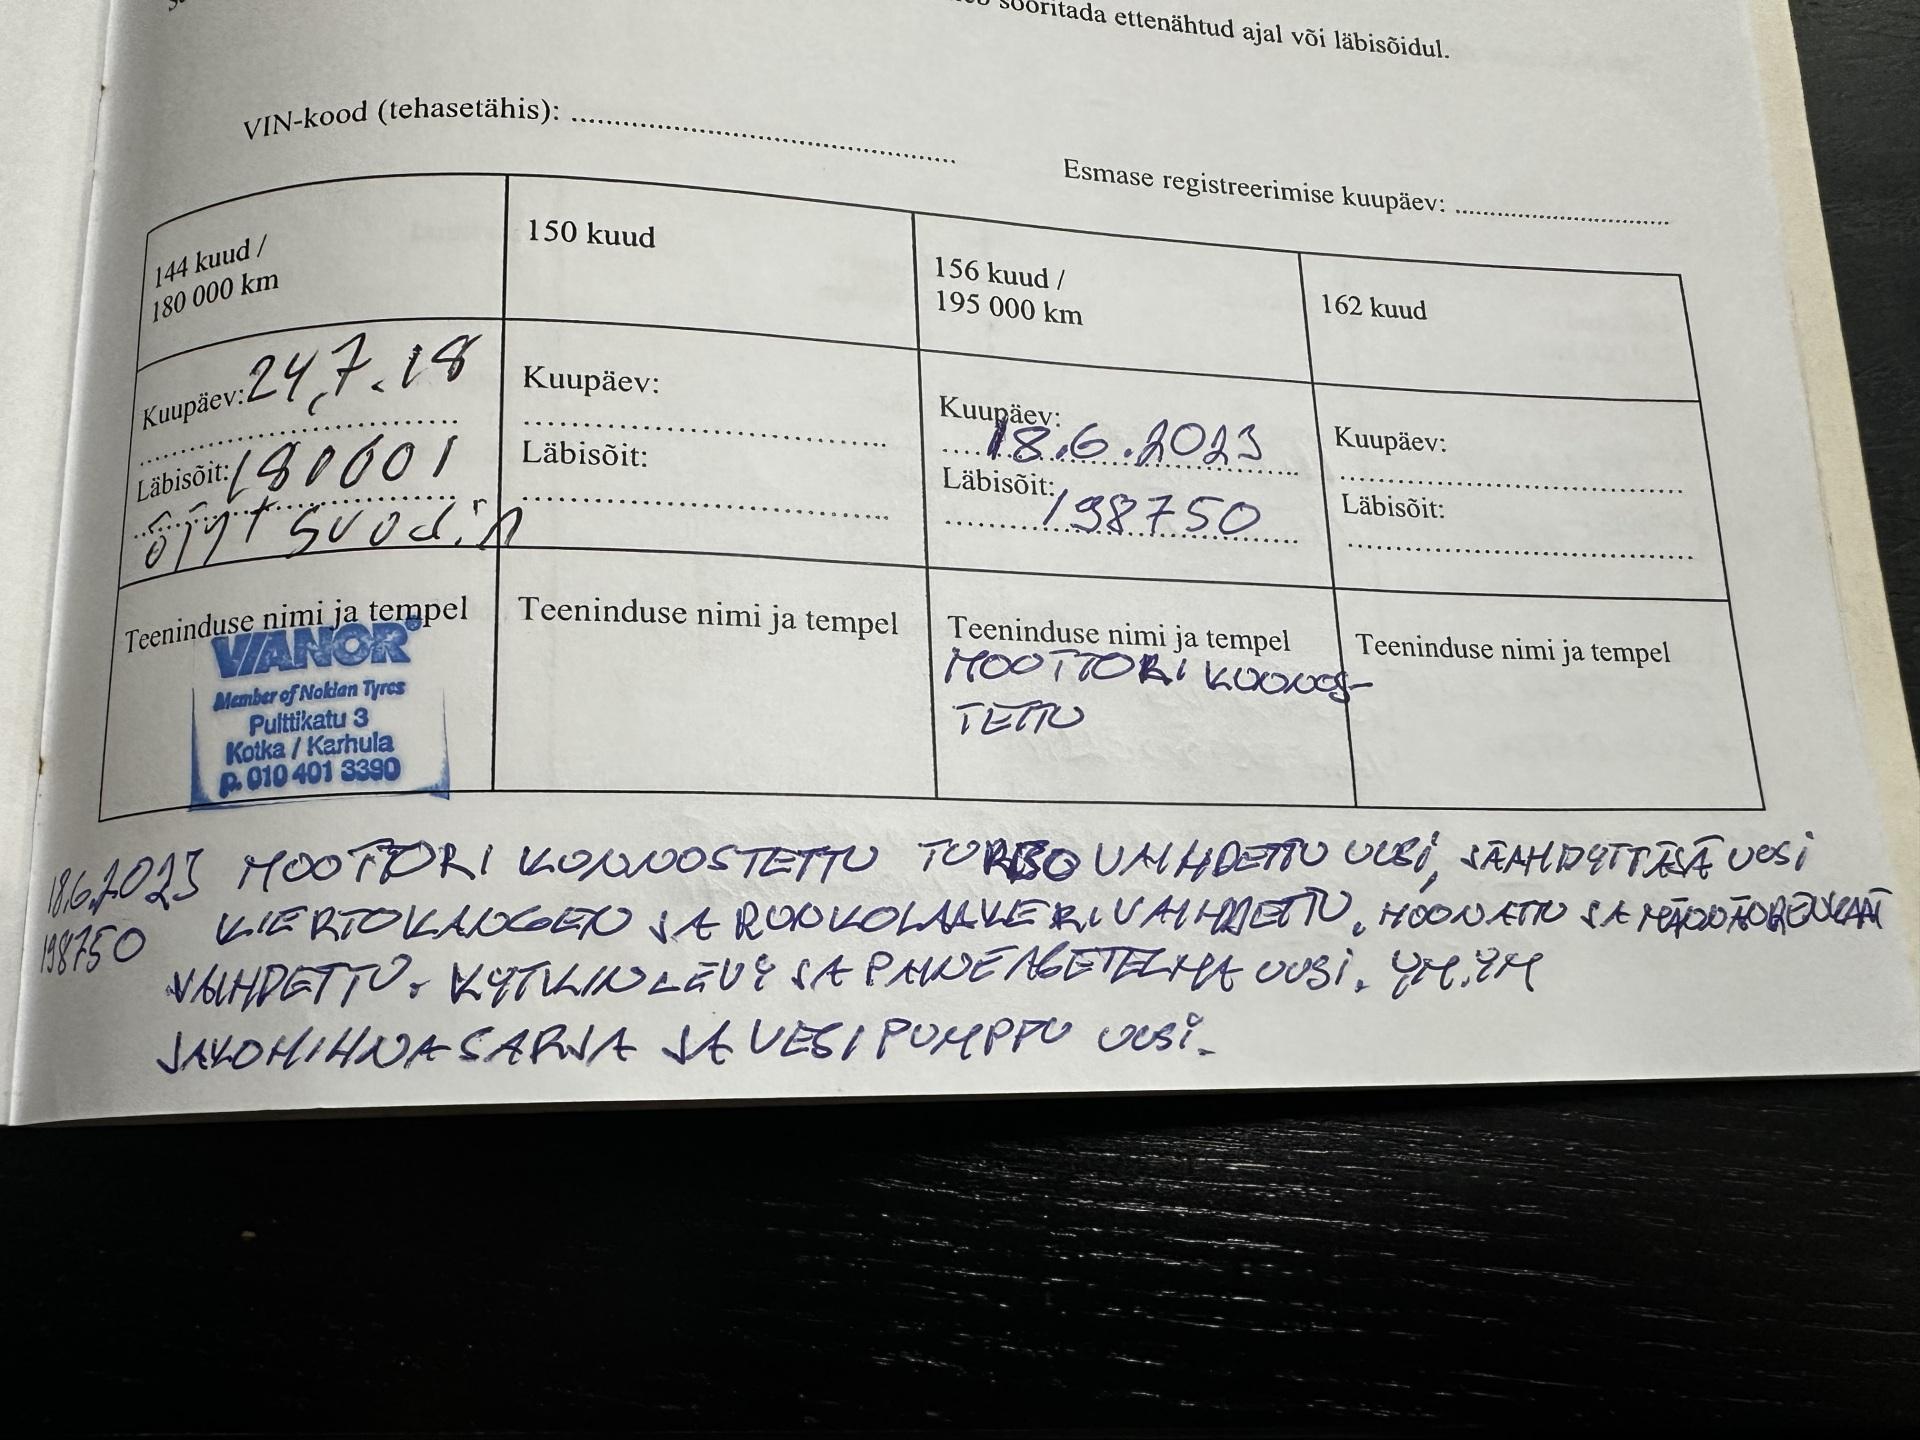 sooritada ettenähtud ajal või läbisõidul.
VIN-kood (tehasetähis): ........................................
Esmase registreerimise kuupäev: ..............................
144 kuud /
180 000 km
150 kuud
156 kuud /
195 000 km
162 kuud
Kuupäev: 24.7.18
Läbisõit: 180601
öjyt suod.n
Kuupäev:
Läbisõit:
Kuupäev:
18.6.2023
Läbisõit:
198750
Kuupäev:
Läbisõit:
Teeninduse nimi ja tempel
VIANOR
Member of Nokian Tyres
Pulttikatu 3
Kotka / Karhula
p. 010 401 3390
Teeninduse nimi ja tempel
Teeninduse nimi ja tempel
MOOTTORI KUNNOS-
TETTU
Teeninduse nimi ja tempel
18.6.2023 MOOTTORI KUNNOSTETTU TURBO VAIHDETTU UUSI, JÄÄHDYTTÄJÄ UUSI
198750 KIERTOKANGEN JA RUNKOLAAKERI VAIHDETTU. HOONATTU JA MÄNNÄNRENKAAT
VAIHDETTU. KYTKINLEVY JA PAINEASETELMA UUSI. YM.YM
JAKOHIHNASARJA JA VESIPUMPPU UUSI.